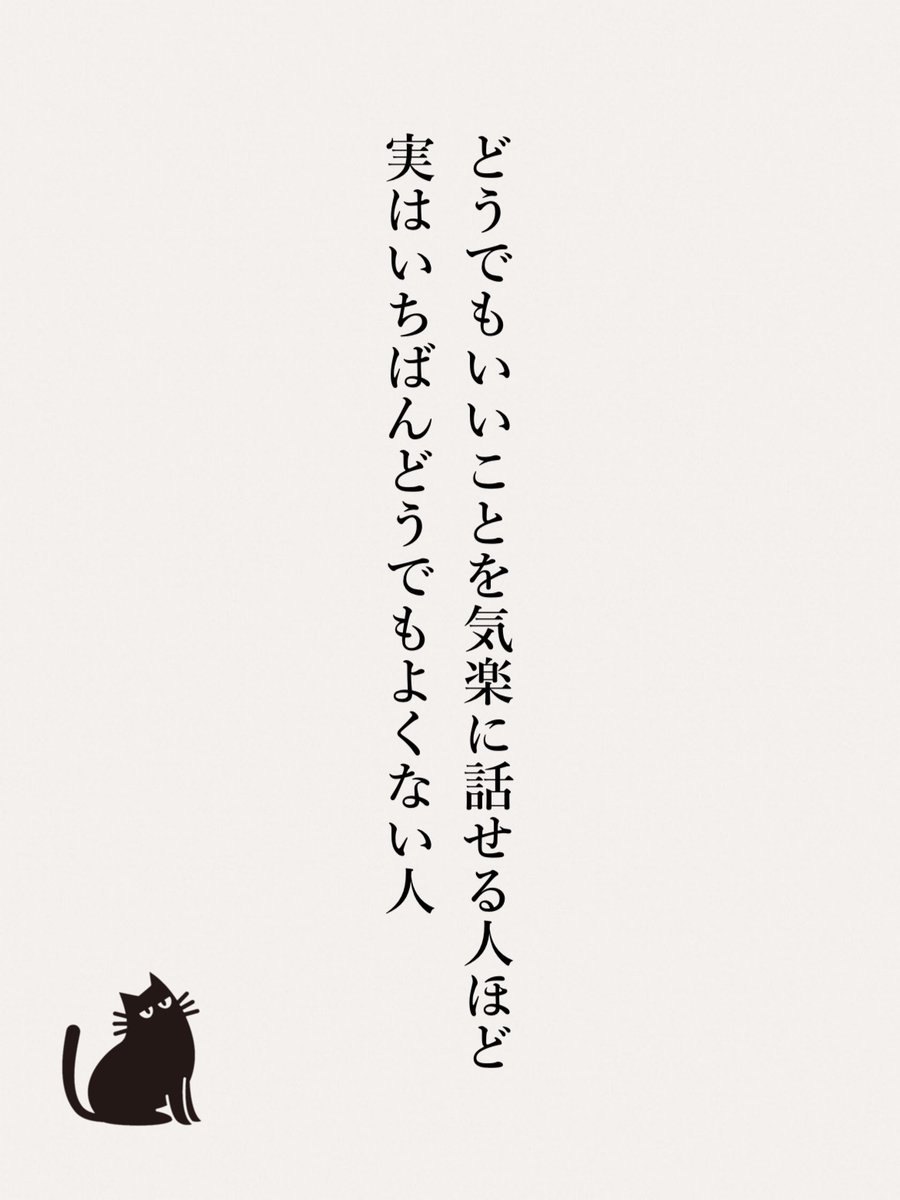 どうでもいいことを気楽に話せる人ほど
実はいちばんどうでもよくない人